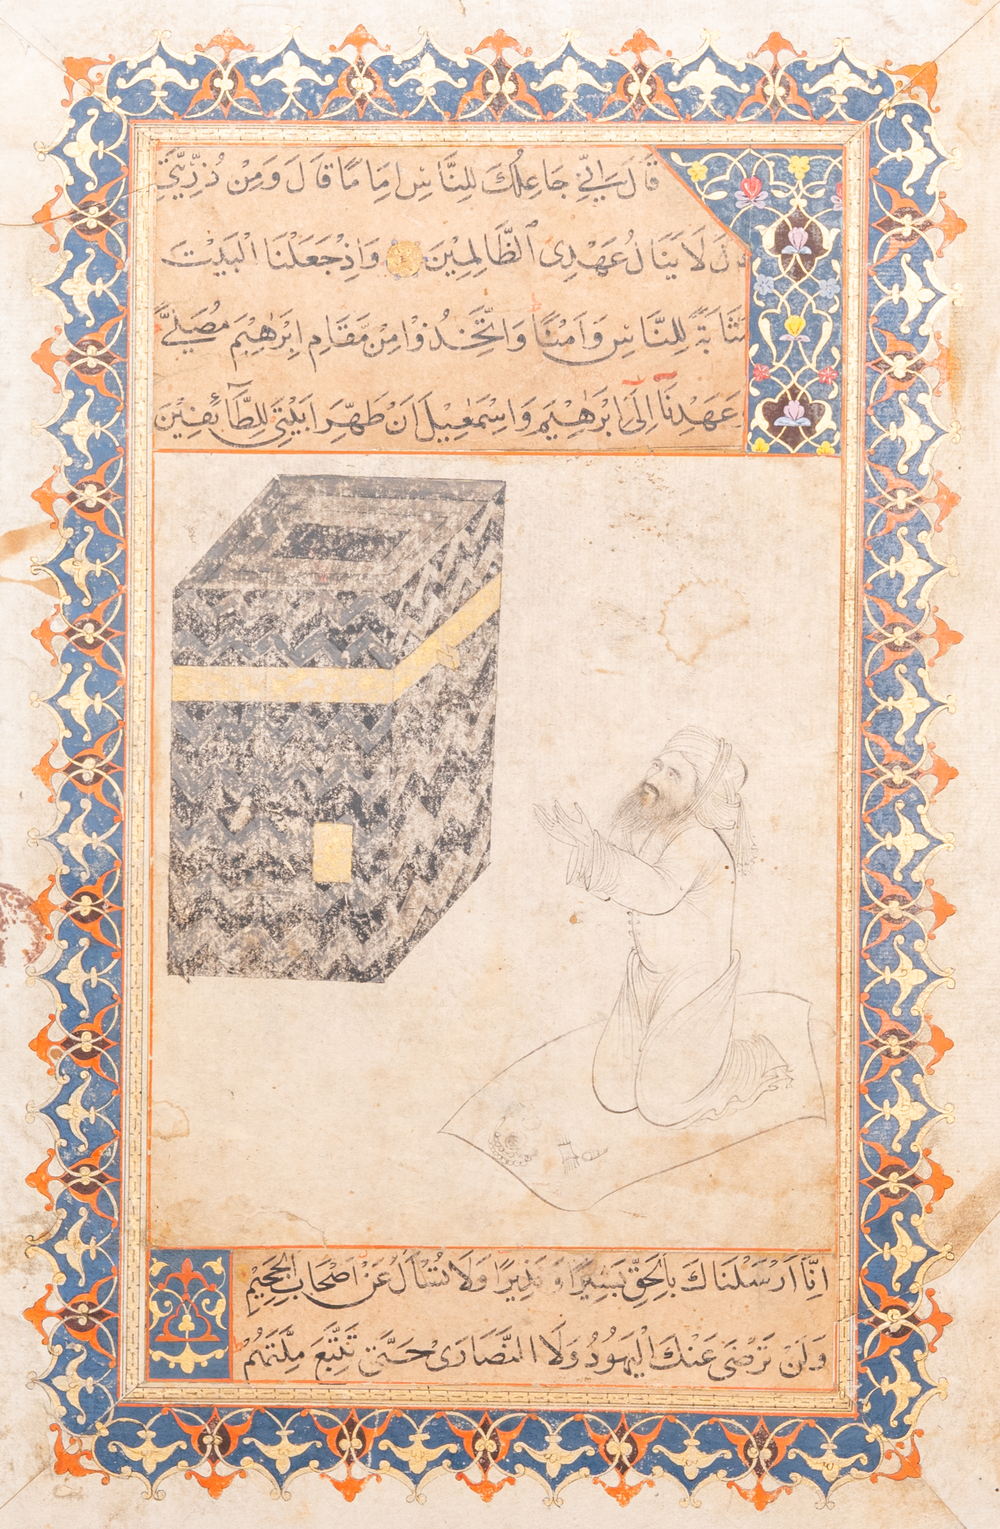 قَالَ اِنّي جَاعِلُكَ لِلنَّاسِ اِمَامًا قَالَ وَمِنْ ذُرِّيَّتِي
قال لَا يَنَالُ عَهْدِى الظَّالِمِيْنَ وَاِذْ جَعَلْنَا الْبَيْتَ
مَثَابَةً لِلنَّاسِ وَاَمْنًا وَاتَّخِذُوا مِنْ مَقَامِ اِبْرٰهِيْمَ مُصَلًّى
عَهِدْنَا اِلَى اِبْرٰهِيْمَ وَاِسْمٰعِيْلَ اَنْ طَهِّرَا بَيْتِيَ لِلطَّآئِفِيْنَ
اِنَّا اَرْسَلْنَاكَ بِالْحَقِّ بَشِيْرًا وَ نَذِيْرًا وَلَا تُسْأَلُ عَنْ اَصْحَابِ الْجَحِيْمِ
وَلَنْ تَرْضَى عَنْكَ الْيَهُوْدُ وَلَا النَّصَارَىٰ حَتَّى تَتَّبِعَ مِلَّتَهُمْ